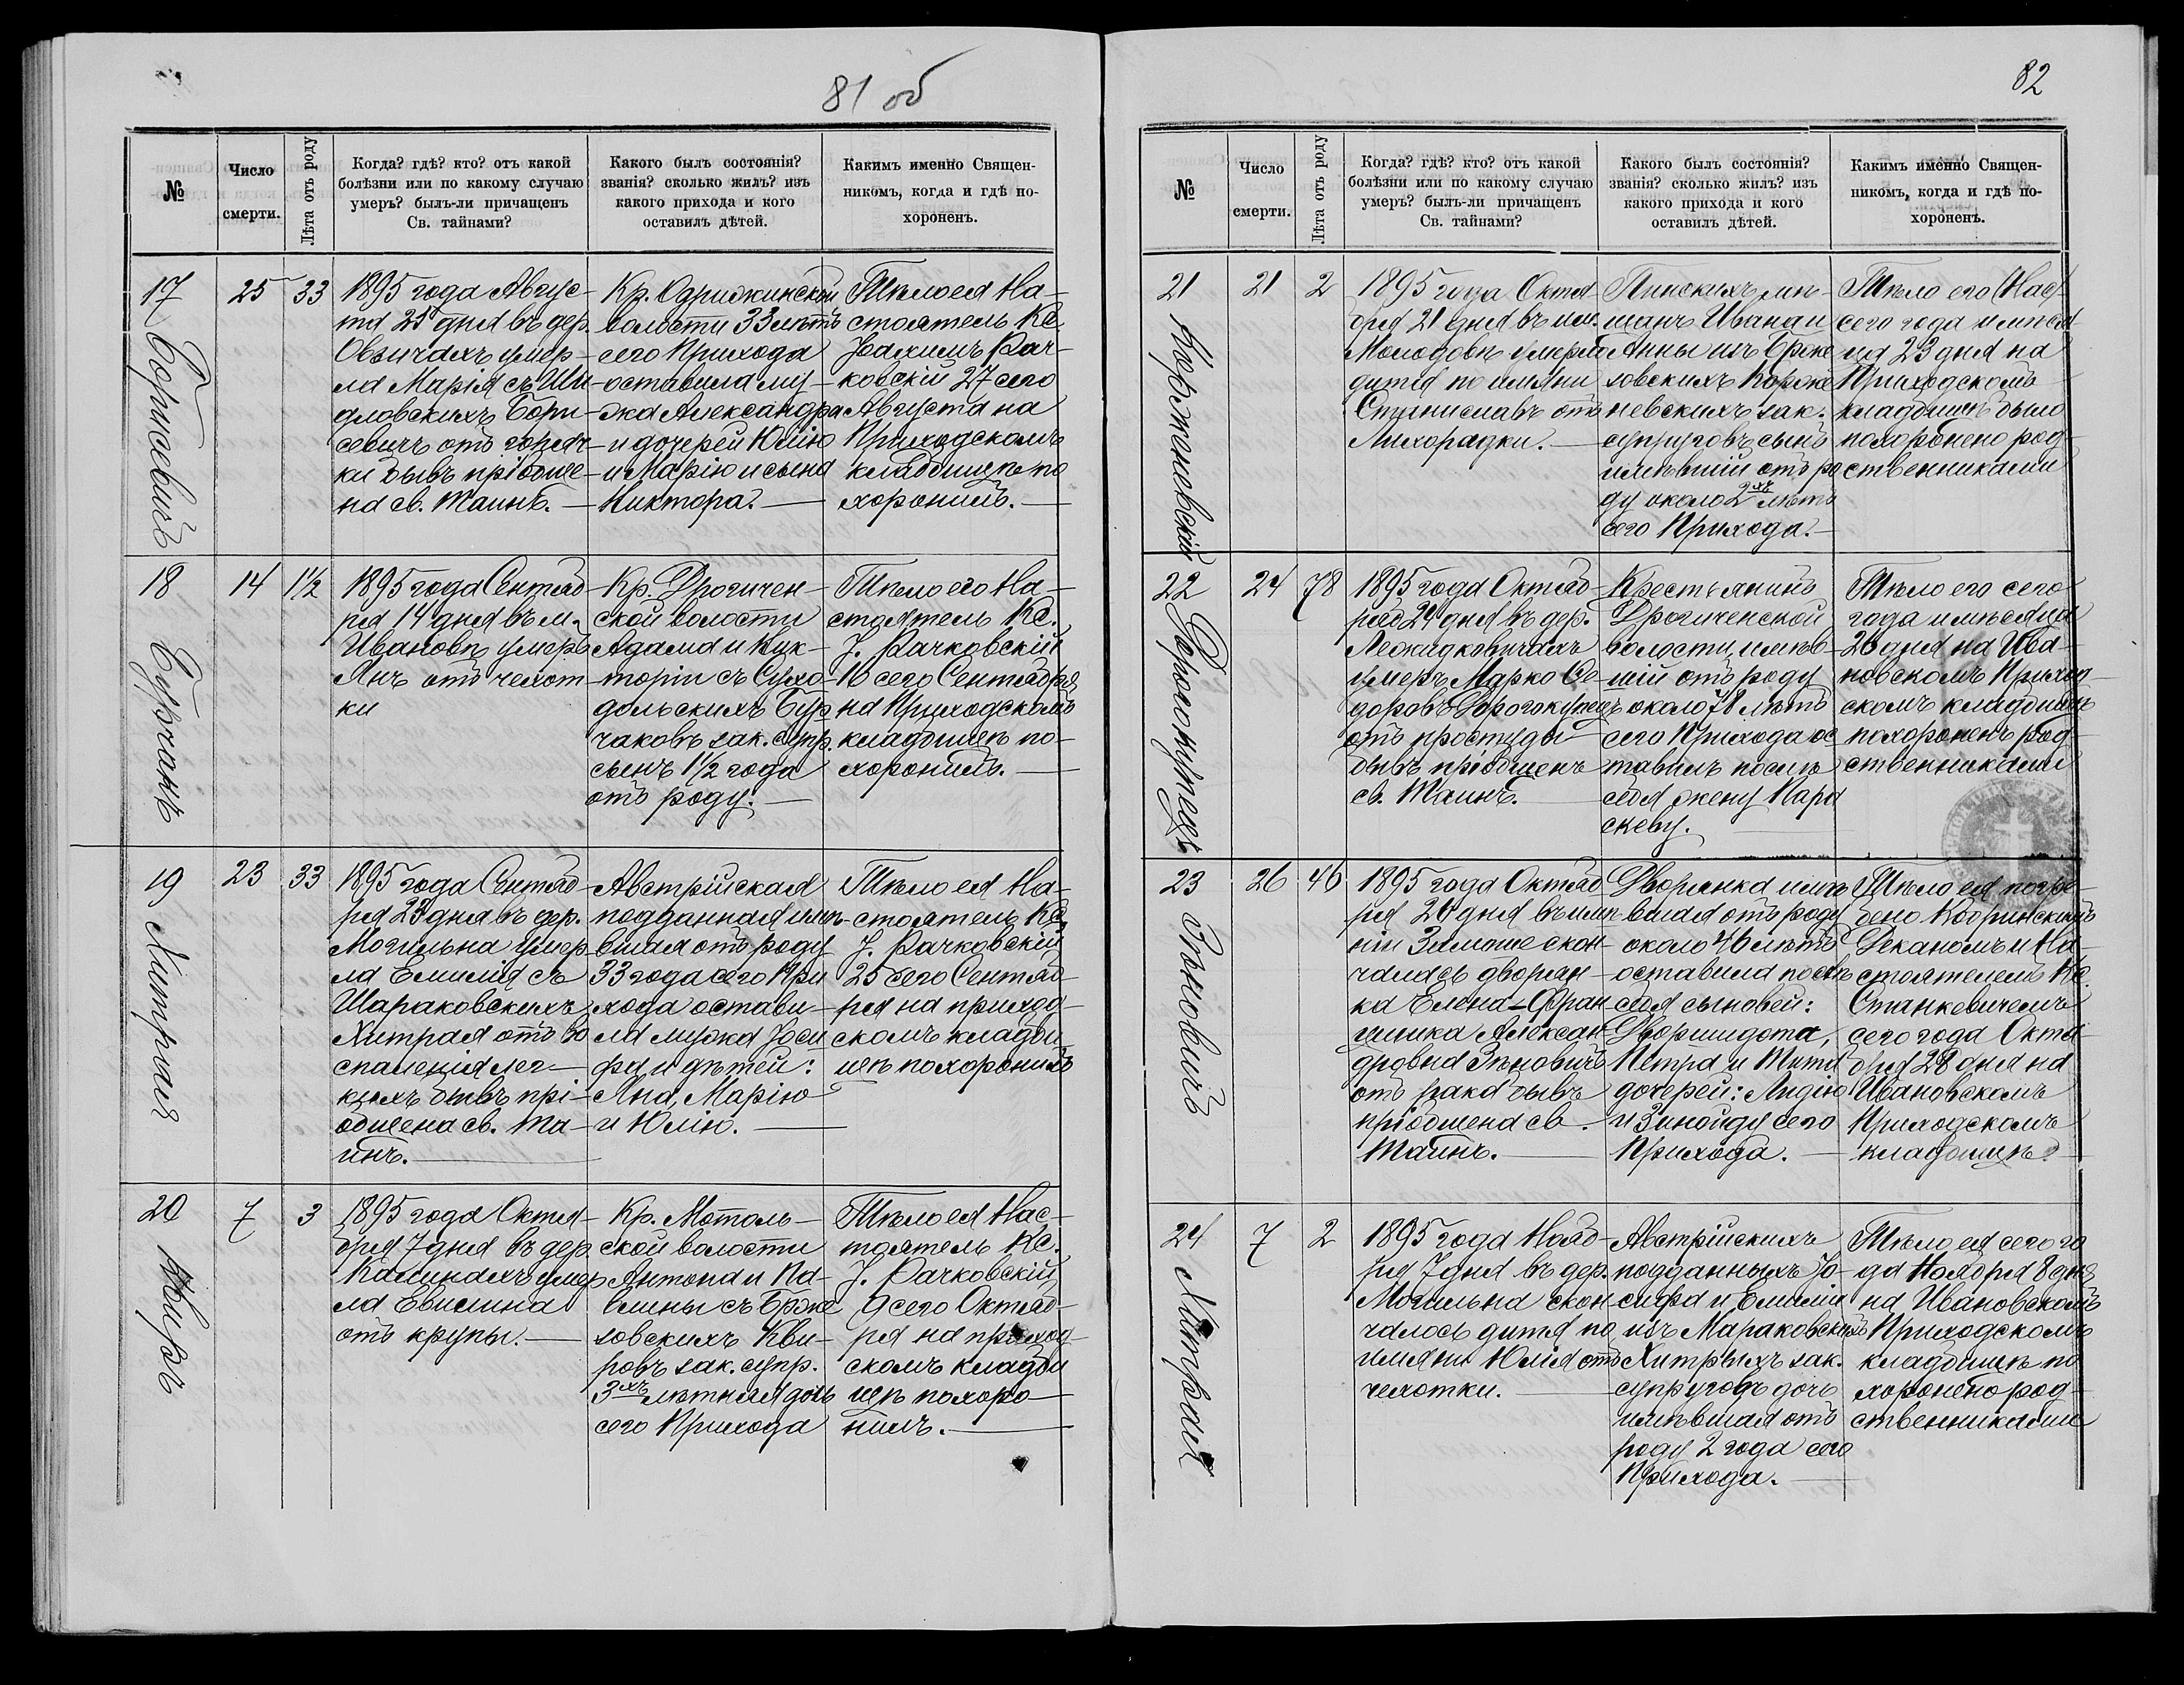 81 об
№
Число
смерти.
Лѣта отъ роду
Когда? гдѣ? кто? отъ какой
болѣзни или по какому случаю
умеръ? былъ-ли причащенъ
Св. тайнами?
Какого былъ состоянія?
званія? сколько жилъ? изъ
какого прихода и кого
оставилъ дѣтей.
Какимъ именно Священ-
никомъ, когда и гдѣ по-
хороненъ.
17
Борисевичъ
25
33
1895 года Авгус-
та 25 дня въ дер.
Овзичахъ умер-
ла Марія съ Ши-
дловскихъ Бори-
севичъ отъ горяч-
ки бывъ пріобще-
на св. Таинъ.
Кр. Одрижинской
волости 33 лѣтъ
сего Прихода
оставила му-
жа Александра
и дочерей Юлію
и Марію и сына
Виктора.
Тѣло ея На-
стоятель Кс.
Іоахимъ Рач-
ковскій 27 сего
Августа на
Приходскомъ
кладбищѣ по
хоронилъ.
18
Бурчакъ
14
1½
1895 года Сентяб-
ря 14 дня въ м.
Ивановѣ умеръ
Янъ отъ чехот-
ки
Кр. Дрогичен-
ской волости
Адама и Вик-
торіи съ Сухо-
дольскихъ Бур
чаковъ зак. супр.
сынъ 1½ года
отъ роду.
Тѣло его На-
стоятель Кс.
І. Рачковскій
16 сего Сентября
на Приходскомъ
кладбищѣ по-
хоронилъ.
19
Хитрая
23
33
1895 года Сентяб-
ря 23 дня въ дер.
Могильна умер
ла Емилія съ
Шараковскихъ
Хитрая отъ во
спаленія лег-
кихъ бывъ прі-
общена св. Та-
инъ.
Австрійская
подданная имѣ-
вшая отъ роду
33 года сего При
хода остави-
ла мужа Іоси
фа и дѣтей:
Яна, Марію
и Юлію.
Тѣло ея На-
стоятель Кс.
І. Рачковскій
25 сего Сентяб-
ря на приход-
скомъ кладби
щѣ похоронилъ
20
Квиръ
7
3
1895 года Октя-
бря 7 дня въ дер.
Калинахъ умер
ла Евилина
отъ крупы.
Кр. Мотоль-
ской волости
Антона и Па-
влины съ Брже
зовскихъ Кви-
ровъ зак. супр.
3хъ лѣтняя дочь
сего Прихода
Тѣло ея Нас-
тоятель Кс.
І. Рачковскій
9 сего Октяб-
ря на приход-
скомъ кладби
щѣ похоро-
нилъ.
82
№
Число
смерти.
Лѣта отъ роду
Когда? гдѣ? кто? отъ какой
болѣзни или по какому случаю
умеръ? былъ-ли причащенъ
Св. тайнами?
Какого былъ состоянія?
званія? сколько жилъ? изъ
какого прихода и кого
оставилъ дѣтей.
Какимъ именно Священ-
никомъ, когда и гдѣ по-
хороненъ.
21
Корженевскій
21
2
1895 года Октя-
бря 21 дня въ им.
Молодовѣ умерло
дитя по имяни
Станиславъ отъ
Лихорадки.
Пинскихъ мѣ-
щанъ Ивана и
Анны изъ Брже
зовскихъ Корже
невскихъ зак.
супруговъ сынъ
имѣвшій отъ ро
ду около 2хъ лѣтъ
сего Прихода.
Тѣло его
сего года мѣся-
ца 23 дня на
Приходскомъ
кладбищѣ было
похоронено род-
ственниками
22
Дорогокупецъ
24
78
1895 года Октяб-
ря 24 дня въ дер.
Ляскидковичахъ
умеръ Марко Ѳе
доровъ Дорогокупецъ
отъ простуды
бывъ пріобщенъ
св. Таинъ.
Крестьянинъ
Дрогиченской
волости, имѣв-
шій отъ роду
около 78 лѣтъ
сего Прихода ос
тавилъ послѣ
себя жену Пара
скеву.
Тѣло его сего
года и мѣсяца
26 дня на Ива-
новскомъ Приход-
скомъ кладбищѣ
похороненъ род-
ственниками
23
Зѣновичъ
26
46
1895 года Октяб
ря 26 дня въ имѣ
ніи Замоше скон-
чалась дворян-
ка Елена-Фран
цишка Алексан
дровна Зѣновичъ
отъ рака бывъ
пріобщена св.
Таинъ.
Дворянка имѣ
вшая отъ роду
около 46 лѣтъ
оставила послѣ
себя сыновей:
Петра и Тита
дочерей: Лидію
и Зинаиду сего
Прихода.
Тѣло ея погре-
бено Кобринскимъ
Деканомъ и На-
стоятелемъ Кс.
Станкевичемъ
сего года Октя-
бря 28 дня на
Ивановскомъ
Приходскомъ
кладбищѣ.
24
Хитрая
7
2
1895 года Нояб-
ря 7 дня въ дер.
Могильна скон-
чалось дитя по
имяни Юлія отъ
чехотки.
Австрійскихъ
подданныхъ Іо-
сифа и Емиліи
изъ Шараковскихъ
Хитрыхъ зак.
супруговъ дочь
имѣвшая отъ
роду 2 года сего
Прихода.
Тѣло ея сего го
да Ноября 8 дня
на Ивановскомъ
Приходскомъ
кладбищѣ по
хоронено род-
ственниками